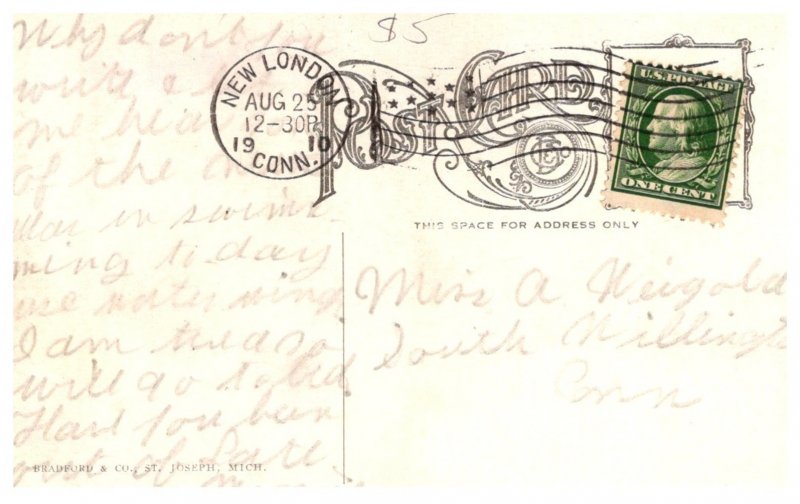 $5
Why don't you
write a
me hear
of the
War in swim-
ming to day
I am tired so
will go to bed
Have you been
out of late
NEW LONDON
AUG 25
12-30P
19 10
CONN.
POST CARD
U.S. POSTAGE
ONE CENT
THIS SPACE FOR ADDRESS ONLY
Miss A Weigold
South Willington
Conn
BRADFORD & CO., ST. JOSEPH, MICH.